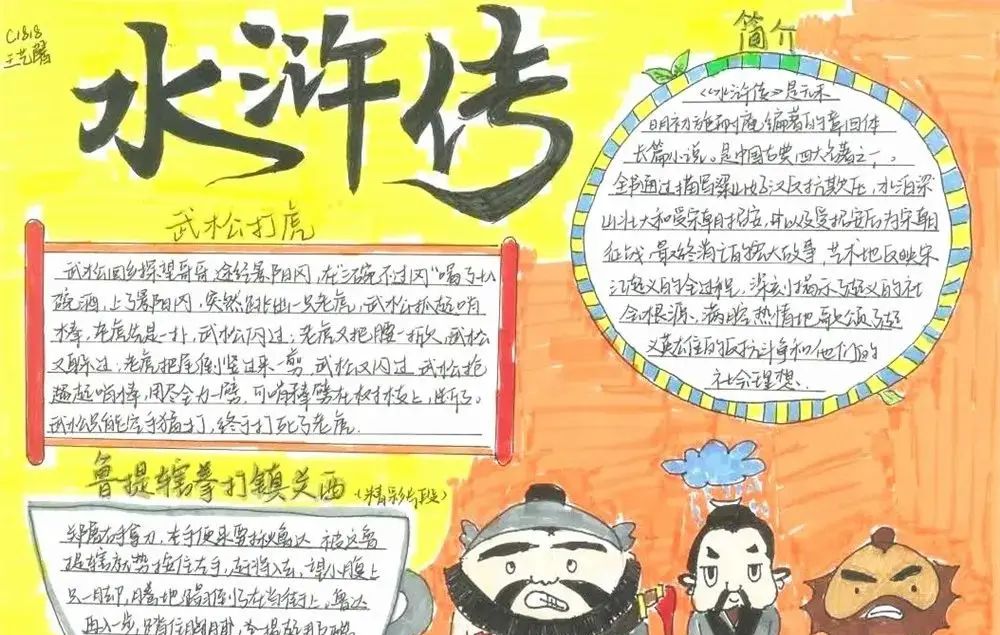 C1818
王艺腾
水浒传
简介
《水浒传》是元末
明初施耐庵编著的章回体
长篇小说。是中国古典四大名著之一。
全书通过描写梁山好汉反抗欺压,水泊梁
山壮大和受宋朝招安,并以及受招安后为宋朝
征战,最终消亡的宏大故事,艺术地反映宋
江起义的全过程,深刻揭示起义的社
会根源,满腔热情地歌颂了起
义英雄的反抗斗争和他们的
社会理想、
武松打虎
武松回乡探望哥哥,途经景阳冈,在"三碗不过冈"喝了十八
碗酒,上了景阳冈,突然跳出一只老虎,武松抓起哨
棒,老虎先是一扑,武松闪过,老虎又把腰一掀,武松
又躲过,老虎把尾倒竖过来一剪,武松又闪过,武松抡
起哨棒,用尽全力一劈,可哨棒劈在树枝上,断了。
武松只能空手猛打,终于打死了老虎.
鲁提辖拳打镇关西(精彩片段)
郑屠右手拿刀,左手便来要揪鲁达 被这鲁
提辖就势按住左手,赶将入去,望小腹上
只一脚,腾地踢倒了在当街上,鲁达
再入一步,踏住胸脯,